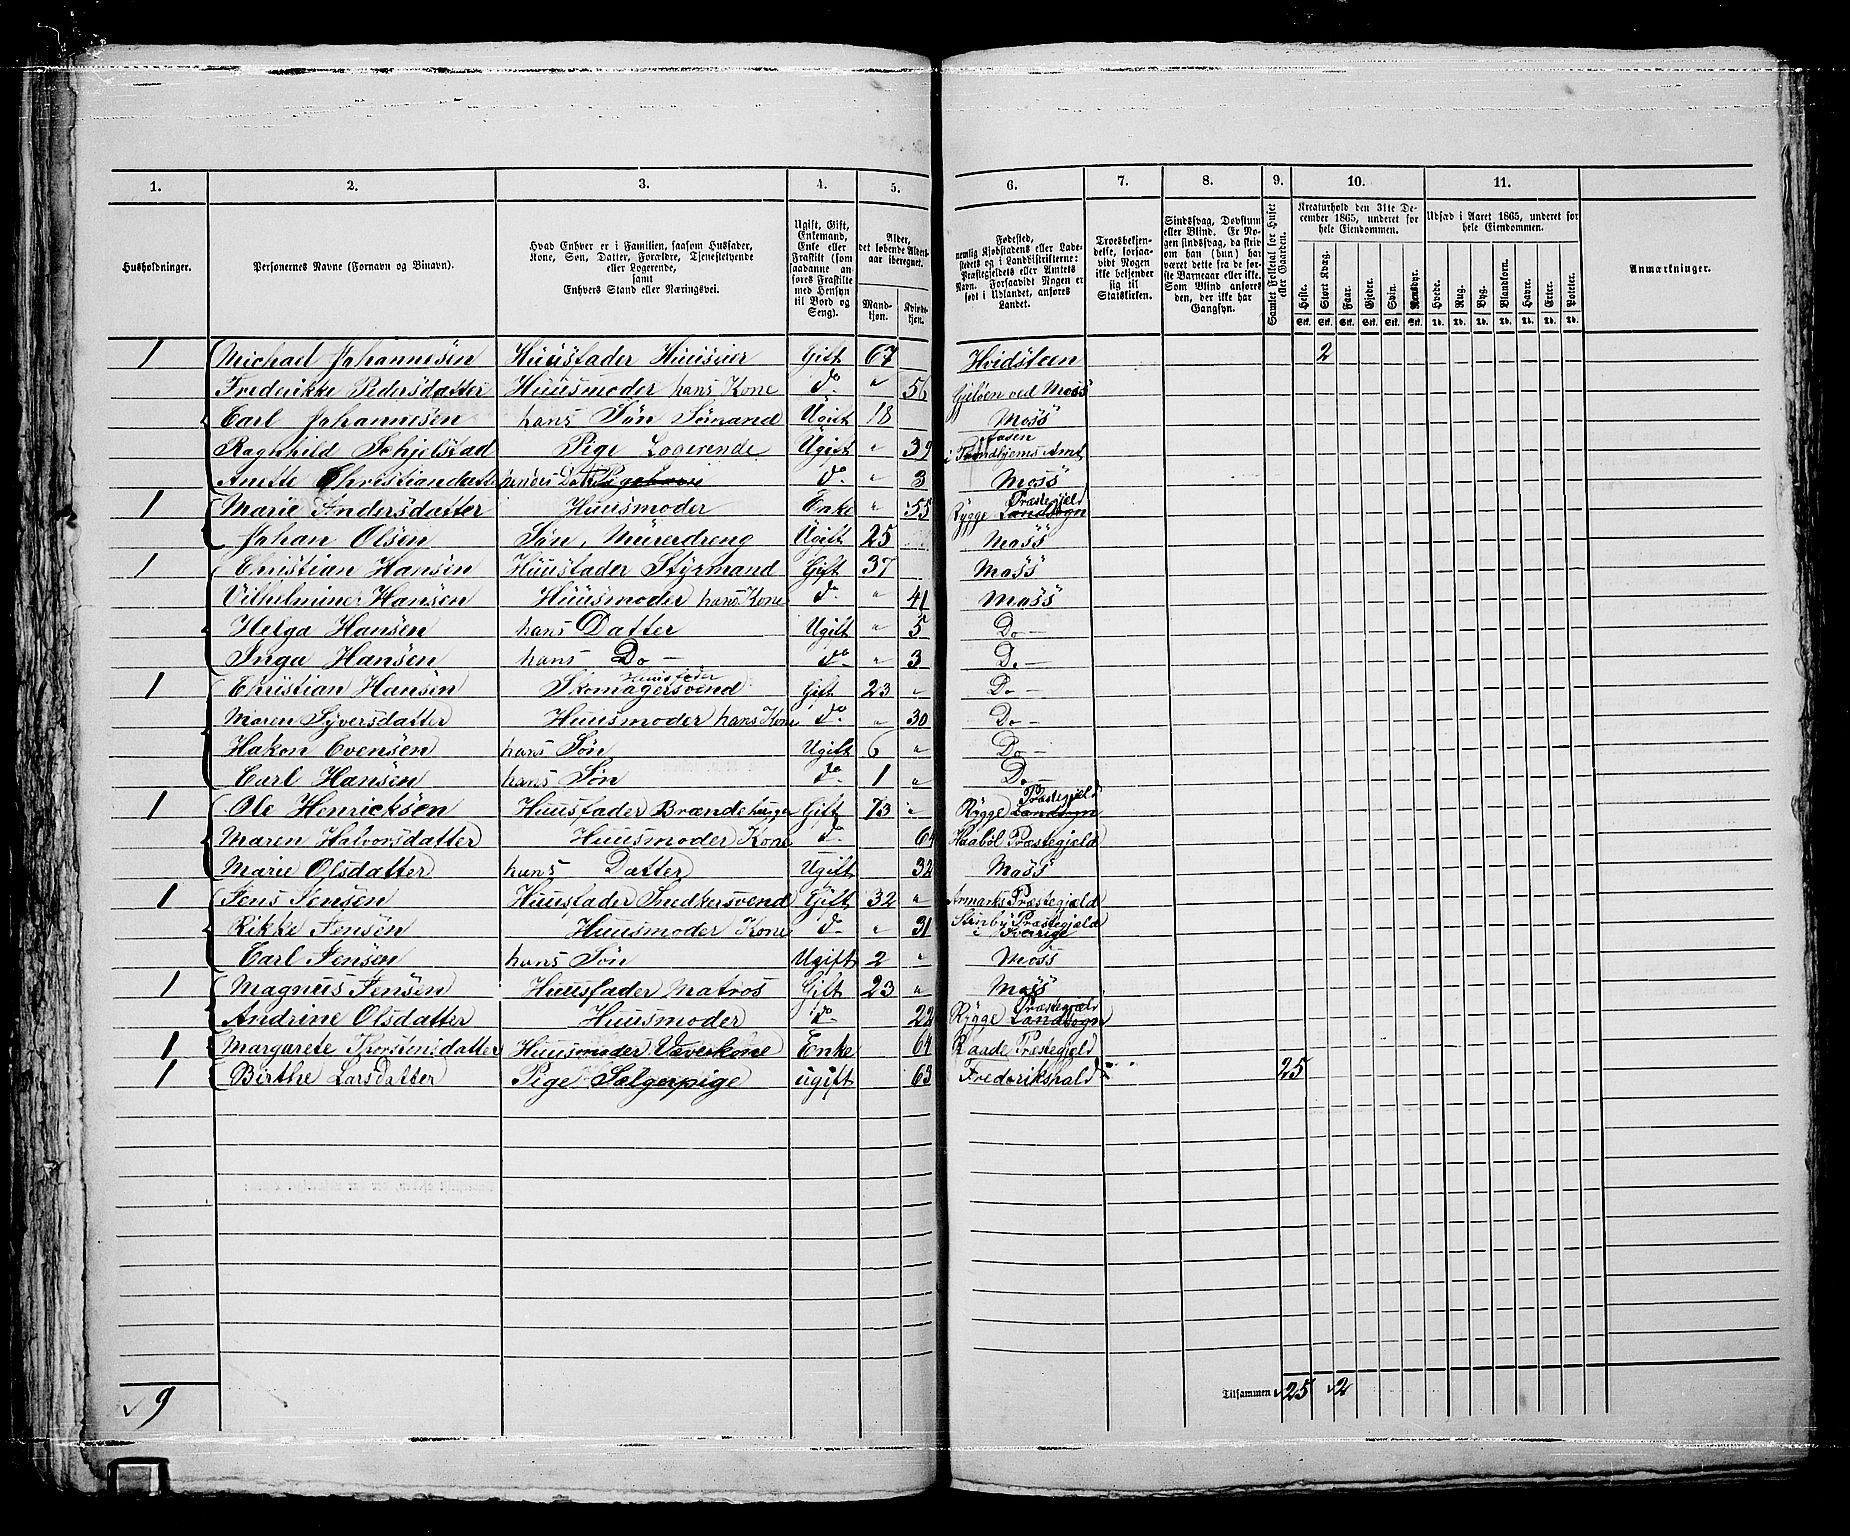 1. 2. 3. 4. 5. 6. 7. 8. 9. 10. 11.
Husholdninger.
Personernes Navne (Fornavn og Binavn).
Hvad Enhver er i Familien, saasom Husfader,
Kone, Søn, Datter, Forældre, Tjenestetyende
eller Logerende,
samt
Enhvers Stand eller Næringsvei.
Ugift, Gift,
Enkemand,
Enke eller
Fraskilt (som
saadanne an-
føres Fraskilte
med Hensyn
til Bord og
Seng).
Alder,
det løbende Alders-
aar iberegnet.
Mand-
kjøn.
Kvinde-
kjøn.
Fødested,
nemlig Kjøbstadens eller Lade-
stedets og i Landdistrikterne:
Præstegjeldets eller Amtets
Navn. Forsaavidt Nogen er
født i Udlandet, anføres
Landet.
Troesbekjen-
delse, forsaa-
vidt Nogen
ikke bekjender
sig til
Statskirken.
Sindssvag, Døvstum
eller Blind. Er No-
gen sindssvag, da skriv
om han (hun) har
været dette fra de før-
ste Barneaar eller ikke.
Som Blind anføres
den, der ikke har
Gangsyn.
Samlet Folketal for Huset
eller Gaarden.
Kreaturhold den 31te De-
cember 1865, underet for
hele Eiendommen.
Heste. Stort Kvæg. Faar. Gjeder. Svin. Rensdyr.
Stk. Stk. Stk. Stk. Stk. Stk.
Udsæd i Aaret 1865, underet for
hele Eiendommen.
Hvede. Rug. Byg. Blandkorn. Havre. Erter. Poteter.
Td. Td. Td. Td. Td. Td. Td.
Anmærkninger.
1 Michael Johannesen Huusfader Huuseier Gift 67 Hvidsteen 2
Frederikke Pedersdatter Huusmoder hans Kone do " 56 Gjeløen ved Moss
Carl Johannesen hans Søn Sømand Ugift 18 Moss
Ragnhild Schjelstad Pige Logerende Ugift " 39 i Trondhjems Amt
Anette Christiandatter hendes Datt do " 3 Moss
1 Marie Andersdatter Huusmoder Enke " 55 Rygge Præstegjeld Landsogn
Johan Olsen Søn, Murerdreng Ugift 25 Moss
1 Christian Hansen Huusfader Styrmand Gift 37 Moss
Vilhelmine Hansen Huusmoder hans Kone do " 41 Moss
Helga Hansen hans Datter Ugift " 5 Do —
Inga Hansen hans Do — do " 3 Do —
1 Christian Hansen Huusfader Skomagersvend Gift 23 " Do —
Maren Syversdatter Huusmoder hans Kone do " 30 Do —
Hakon Evensen hans Søn Ugift 6 " Do —
Carl Hansen hans Søn do 1 " Do —
1 Ole Henricksen Huusfader Brændehugger Gift 73 " Rygge Præstegjeld Landsogn
Maren Halvorsdatter Huusmoder Kone do 64 Haabøl Præstegjeld
Marie Olsdatter hans Datter Ugift 32 Moss
1 Jens Jensen Huusfader Snedkersvend Gift 32 " Armarks Præstegjeld
Rikke Jensen Huusmoder Kone do " 31 Stenby Præstegjeld i Sverige
Carl Jensen hans Søn Ugift 2 " Moss
1 Magnus Jensen Huusfader Matros Gift 23 " Moss
Andrine Olsdatter Huusmoder do 22 Rygge Præstegjeld Landsogn
1 Margarete Thorstensdatter Huusmoder Væverkone Enke 64 Raade Præstegjeld
1 Birthe Larsdatter Pige Sælgerpige ugift 63 Frederikshald 25
9
Tilsammen 25 2